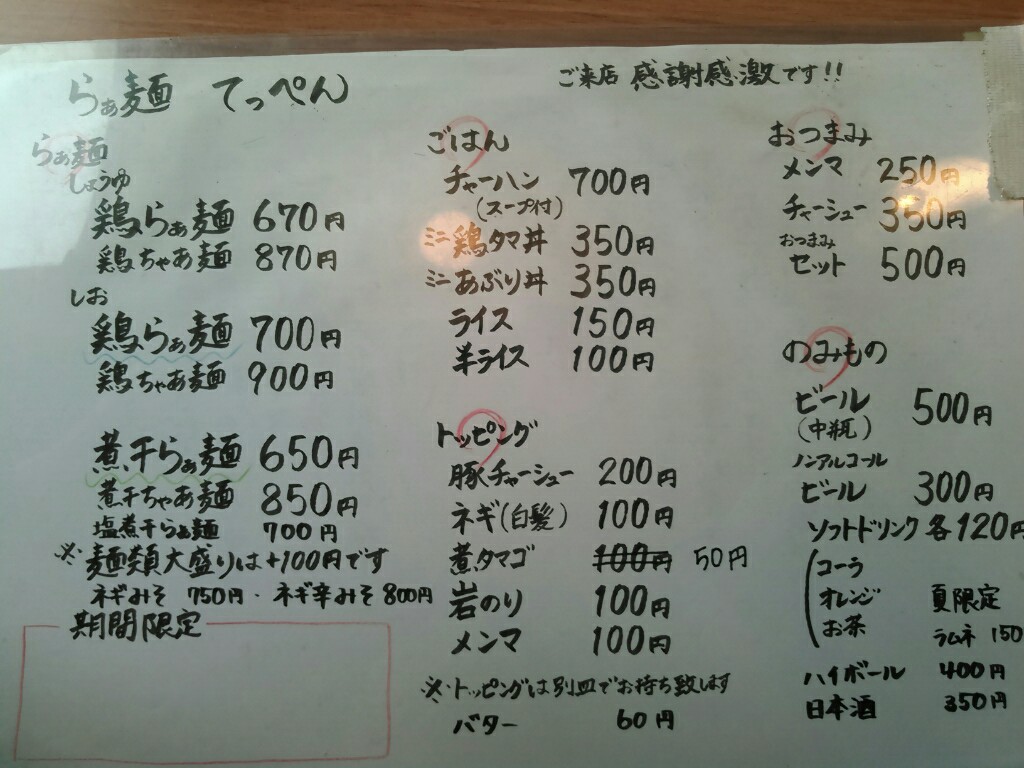 らぁ麺 てっぺん
ご来店 感謝感激です!!
らぁ麺
しょうゆ
鶏らぁ麺 670円
鶏ちゃあ麺 870円
しお
鶏らぁ麺 700円
鶏ちゃあ麺 900円
煮干らぁ麺 650円
煮干ちゃあ麺 850円
塩煮干らぁ麺 700円
※麺類大盛りは+100円です
ネギみそ 750円・ネギ辛みそ 800円
期間限定
ごはん
チャーハン 700円
(スープ付)
ミニ鶏タマ丼 350円
ミニあぶり丼 350円
ライス 150円
半ライス 100円
トッピング
豚チャーシュー 200円
ネギ(白髪) 100円
煮タマゴ 100円 50円
岩のり 100円
メンマ 100円
※トッピングは別皿でお持ち致します
バター 60円
おつまみ
メンマ 250円
チャーシュー 350円
おつまみ
セット 500円
のみもの
ビール 500円
(中瓶)
ノンアルコール
ビール 300円
ソフトドリンク 各120円
コーラ
オレンジ 夏限定
お茶 ラムネ 150
ハイボール 400円
日本酒 350円